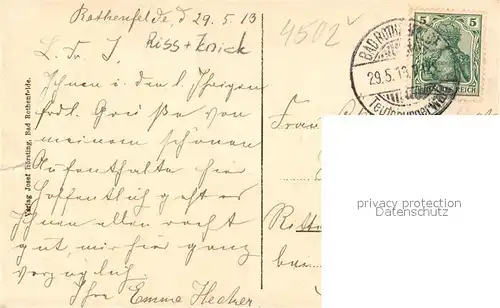 Rothenfelde, d 29.5.13
4502
Riss + Knick
L. Fr. J.
Ihnen und den l. Ihrigen
frdl. Grüße von
meinem schönen
Aufenthalte hier
Hoffentlich geht es
Ihnen allen recht
gut, mir hier ganz
vorzüglich.
Ihre Emma Hecker
Verlag Josef Hörsting, Bad Rothenfelde.
BAD ROTHENFELDE
29.5.13
Teutoburgerwald
5 5
REICH
Frau
privacy protection
Datenschutz
bei